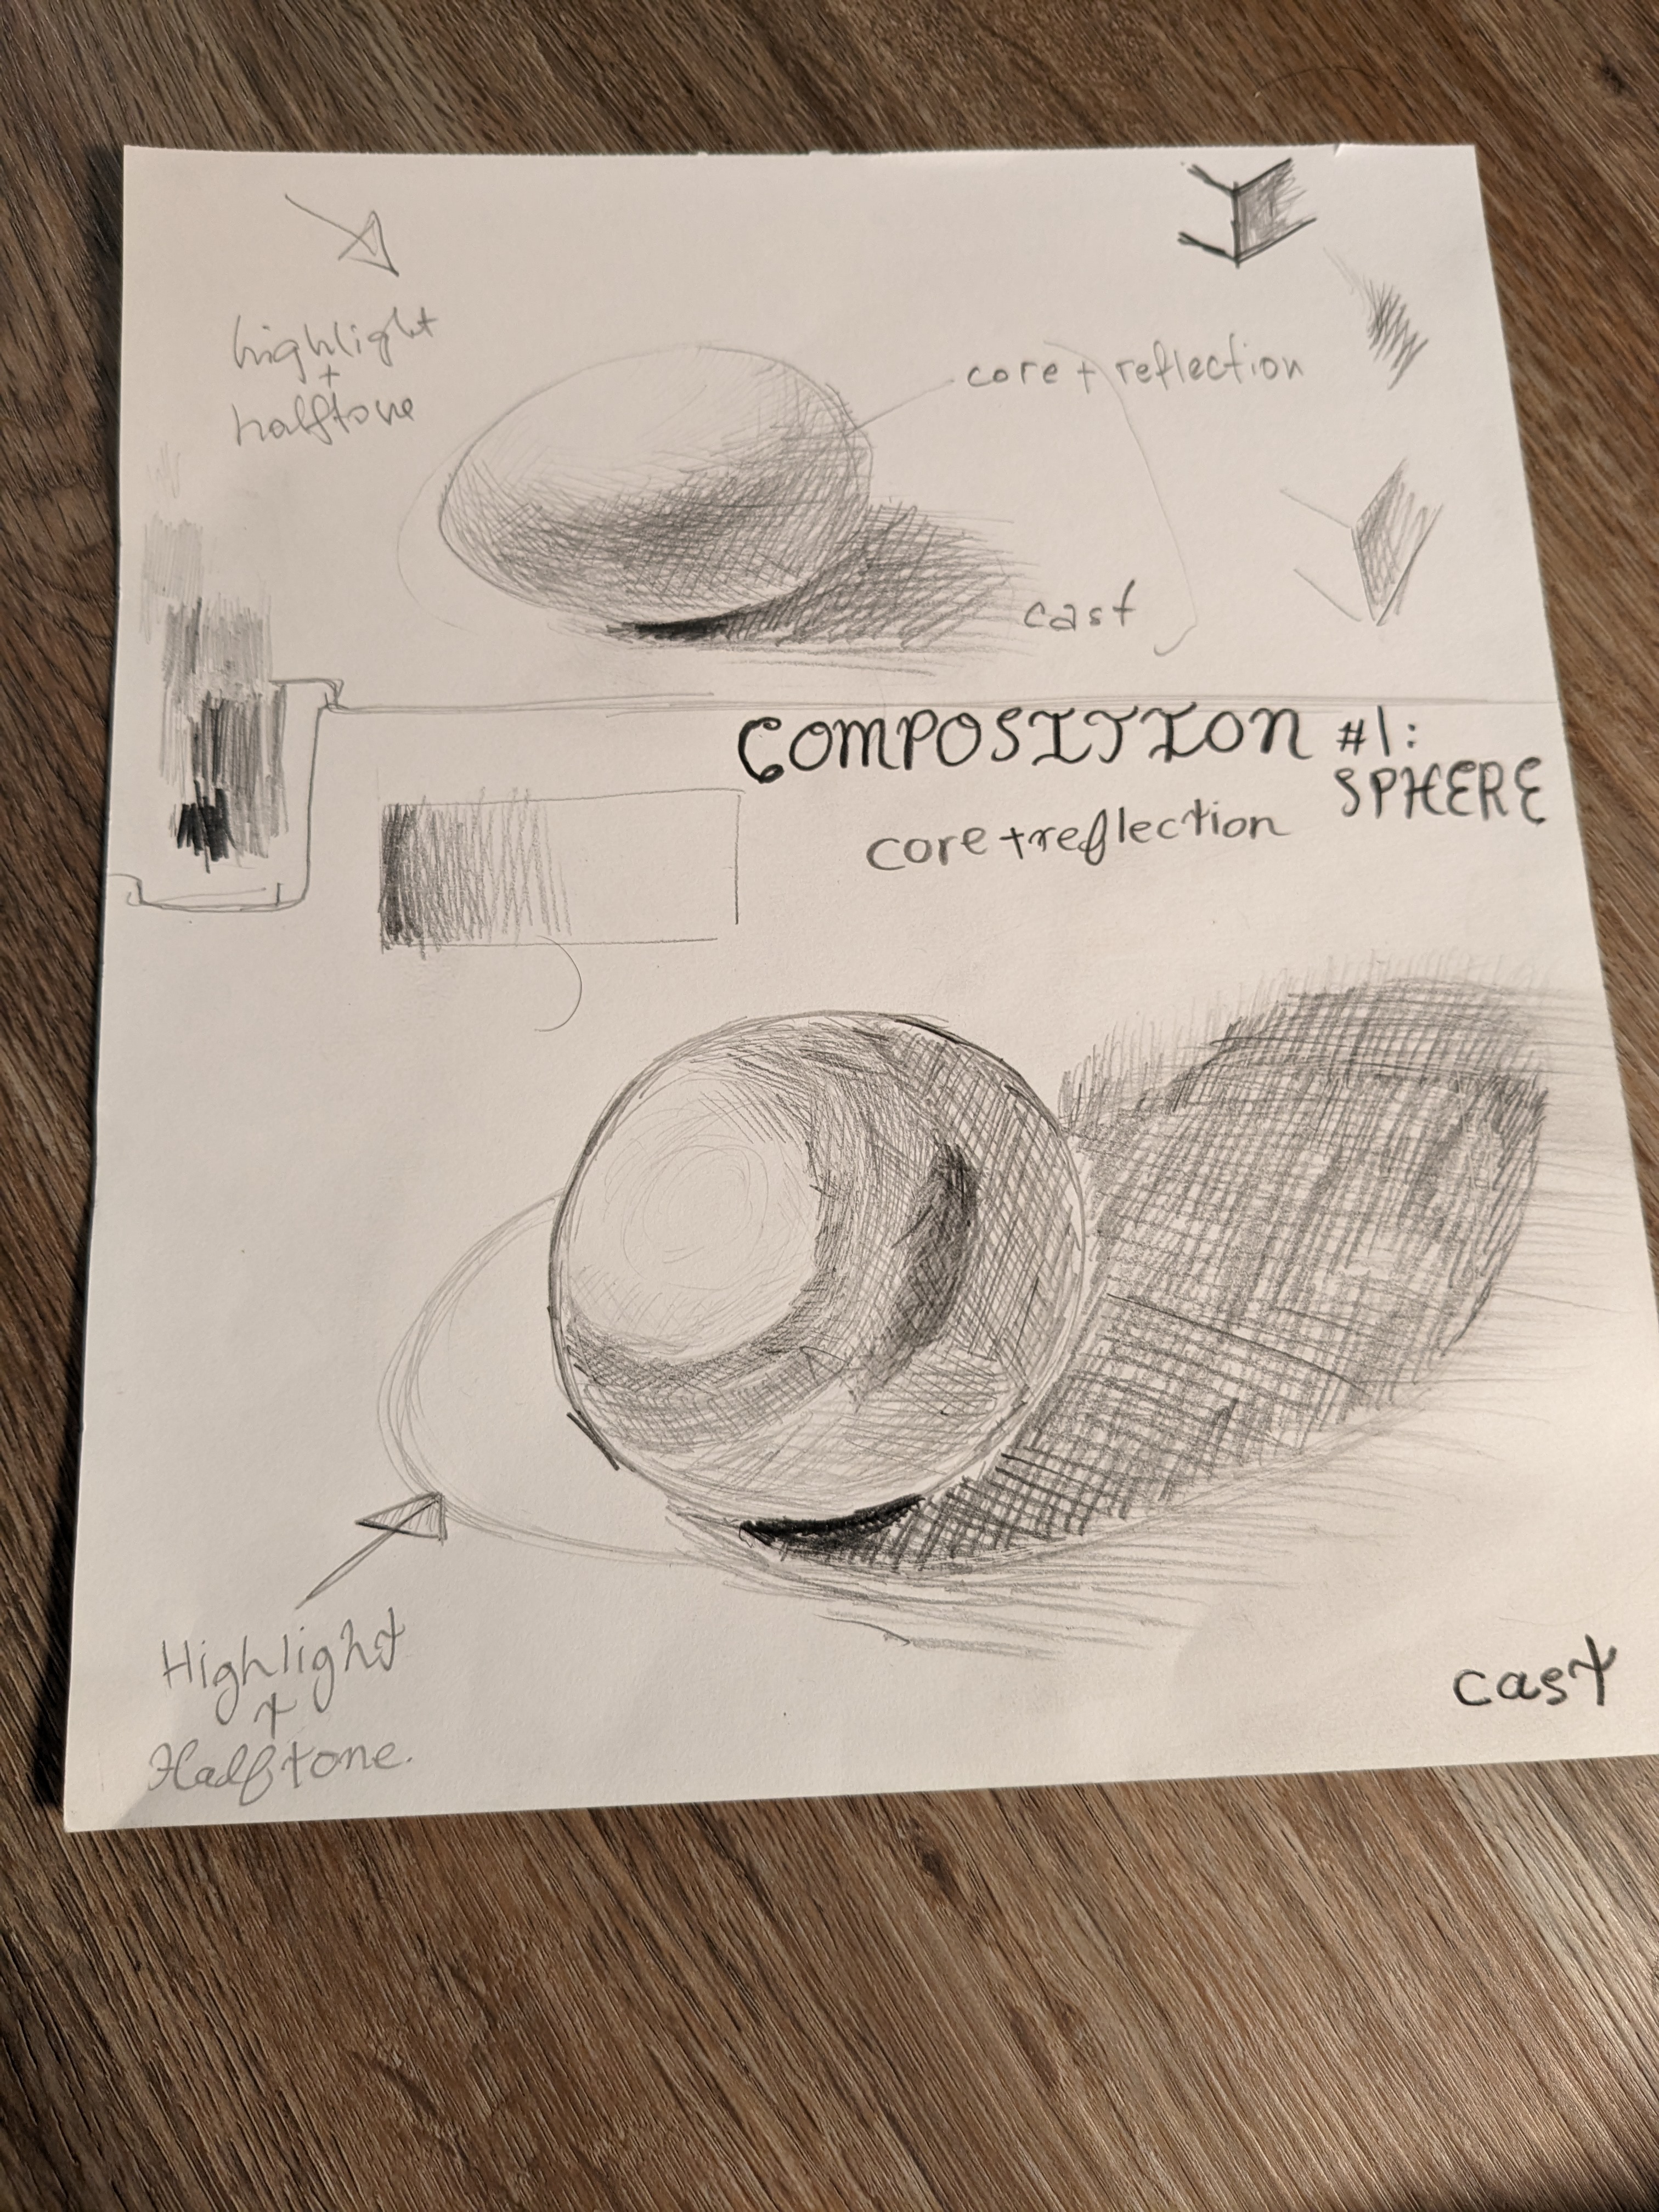 highlight
+
halftone
core + reflection
cast
COMPOSITION #1:
SPHERE
core + reflection
Highlight
+
Halftone.
cast